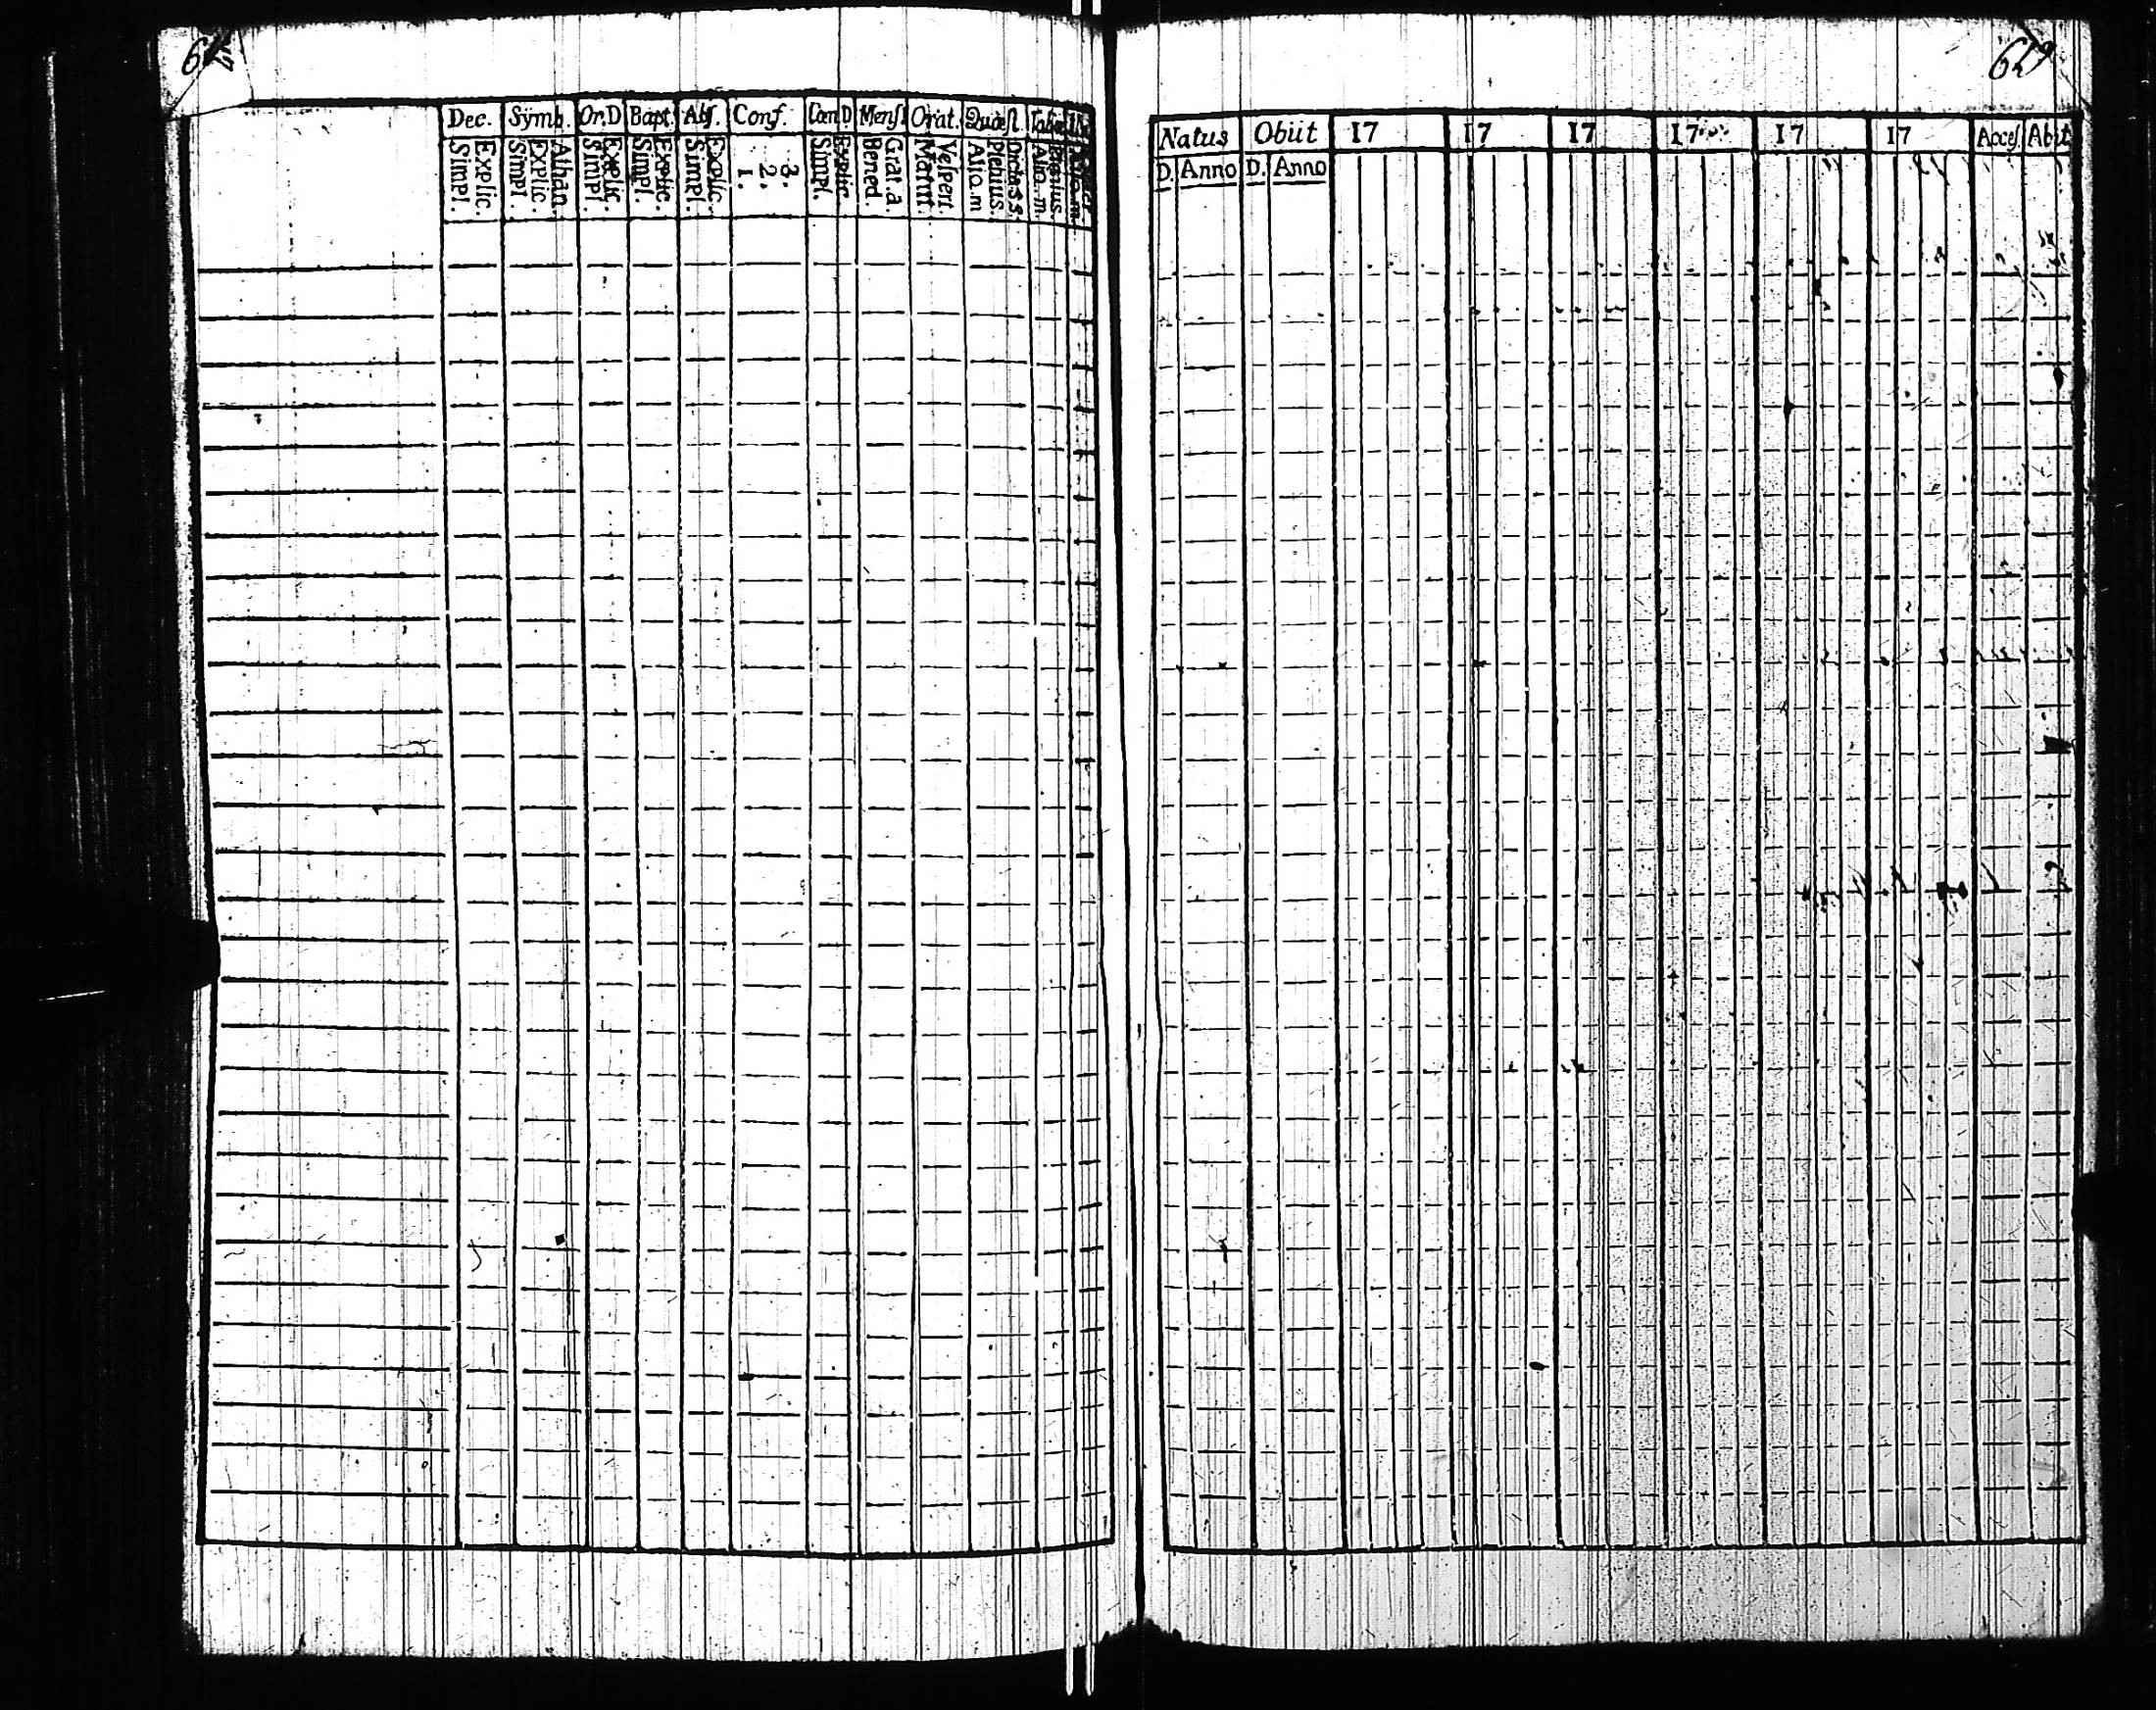 Dec. Sÿmb. Or. D Bapt. Abs. Conf. Cœn D. Mens Orat. Quæst. Tabæ
Simpl. Explic. Simpl. Explic. Athan. Simpl. Explic. Simpl. Explic. Simpl. Explic. 1. 2. 3. Simpl. Explic. Bened. Grat. a. Matut. Vespert. Alio. m Plenius. Dicta SS. Alio. m. Plenius.
629
Natus Obiit 17 17 17 17 17 17 Acces Abiit
D. Anno D. Anno